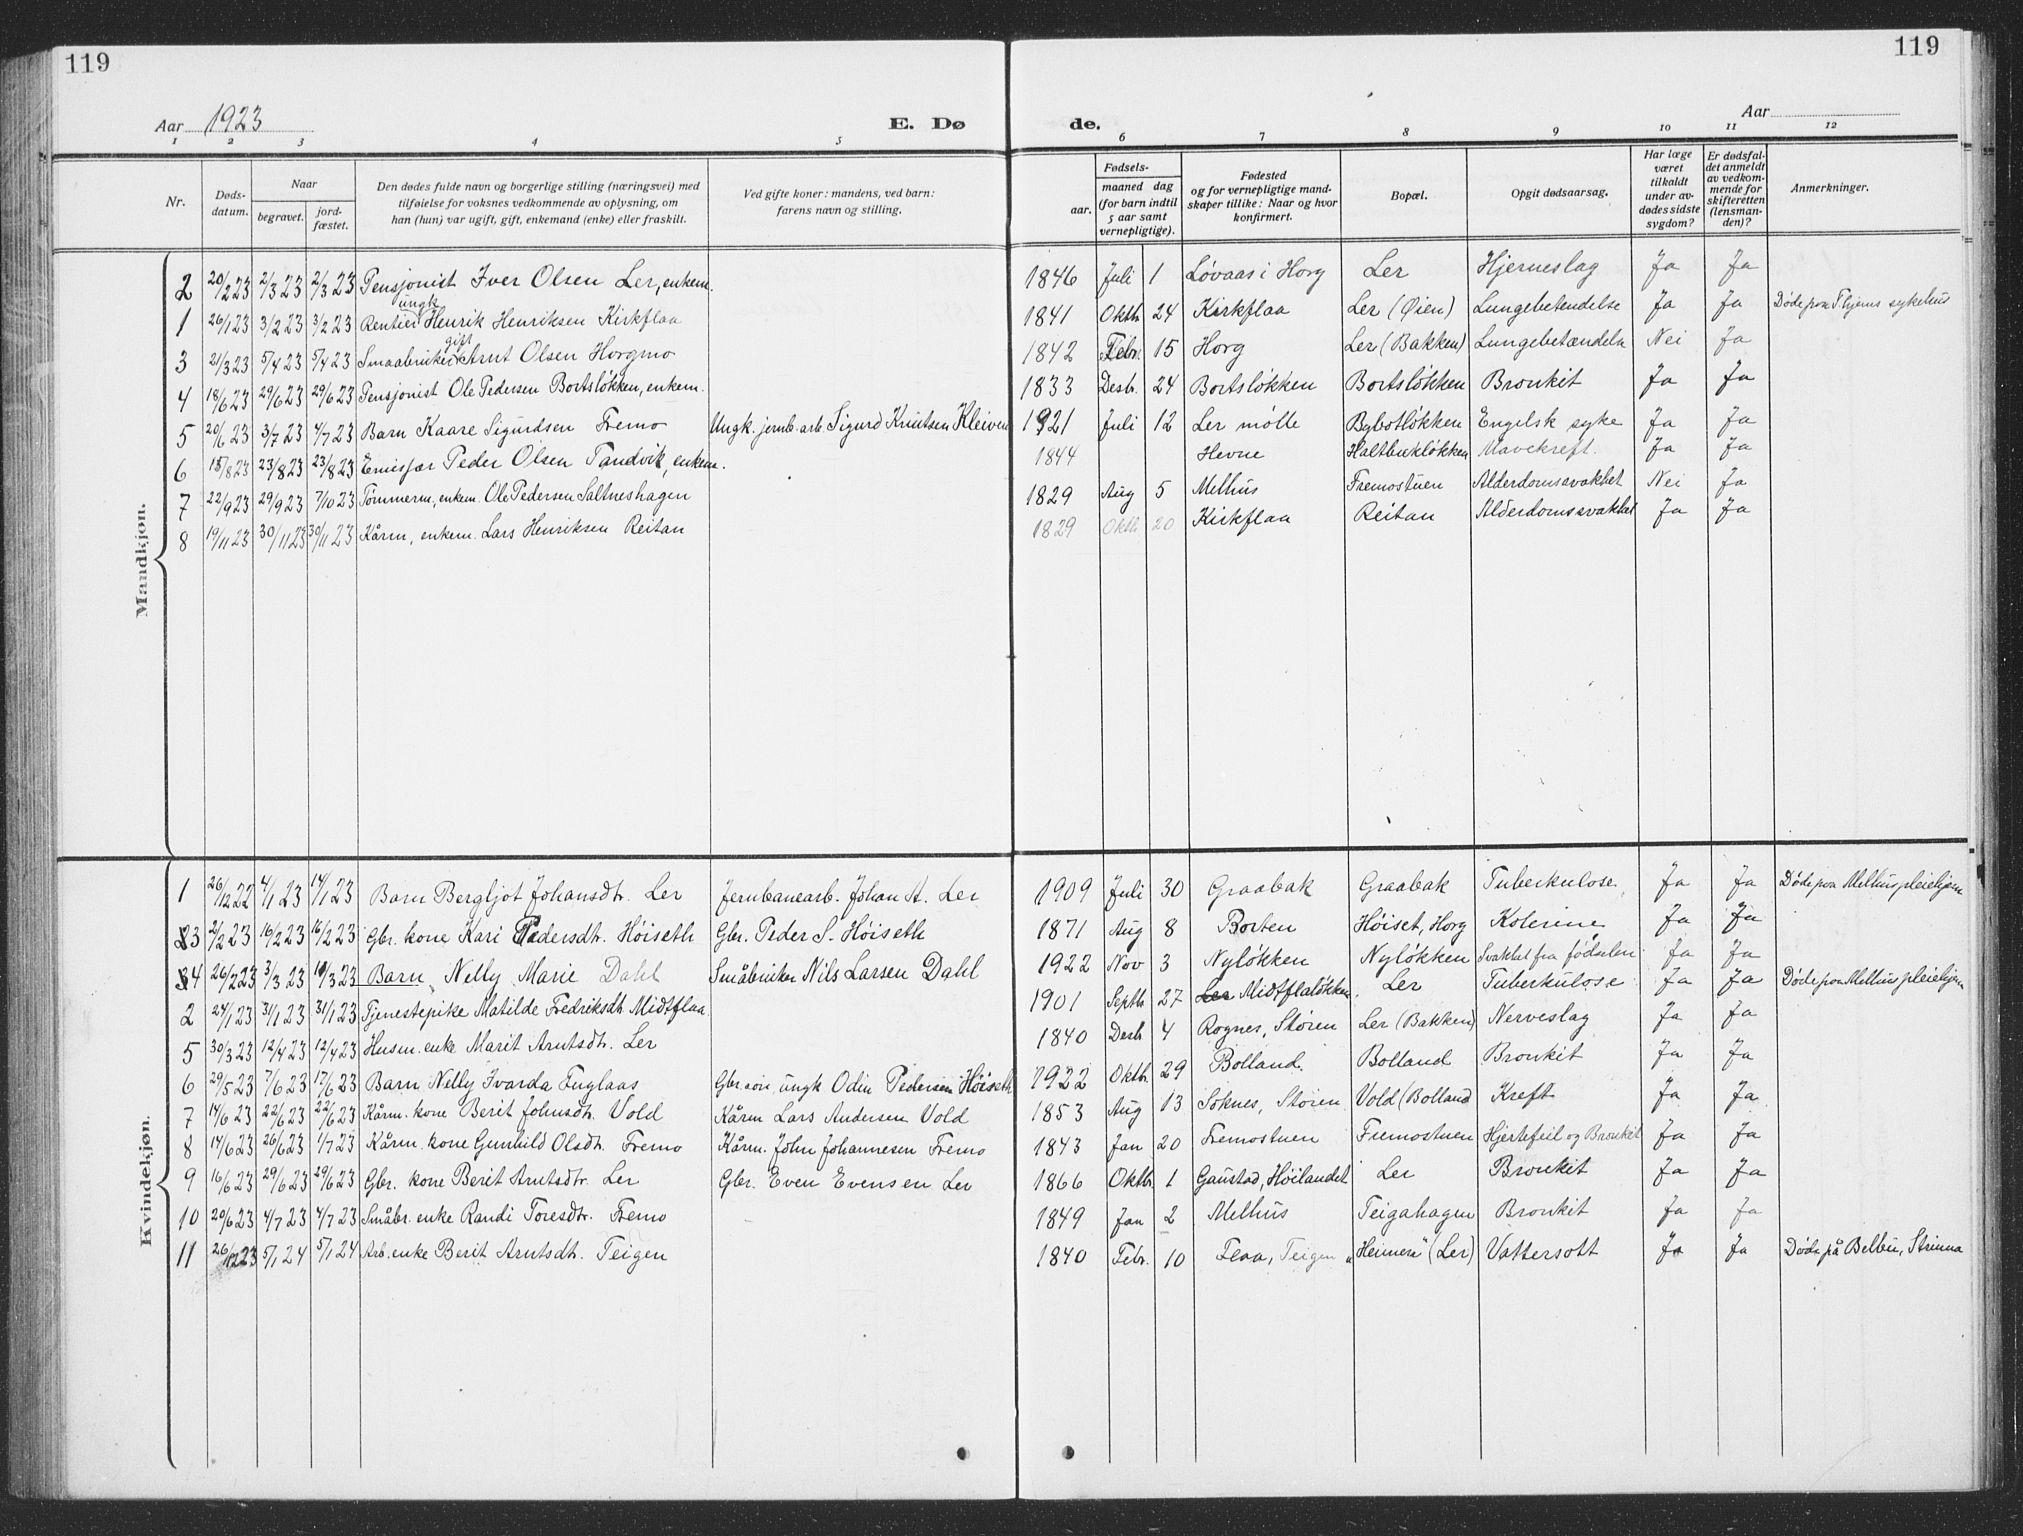 119
119
Aar 1923
E. Dø
de.
Aar
1 2 3 4 5 6 7 8 9 10 11 12
Nr.
Døds-
datum.
Naar
begravet.
jord-
fæstet.
Den dødes fulde navn og borgerlige stilling (næringsvei) med
tilføielse for voksnes vedkommende av oplysning, om
han (hun) var ugift, gift, enkemand (enke) eller fraskilt.
Ved gifte koner: mandens, ved barn:
farens navn og stilling.
Fødsels-
aar.
maaned dag
(for barn indtil
5 aar samt
vernepligtige).
Fødested
og for vernepligtige mand-
skaper tillike: Naar og hvor
konfirmert.
Bopæl.
Opgit dødsaarsag.
Har læge
været
tilkaldt
under av-
dødes sidste
sygdom?
Er dødsfal-
det anmeldt
av vedkom-
mende for
skifteretten
(lensman-
den)?
Anmerkninger.
Mandkjøn.
2 20/2 23 2/3 23 2/3 23 Pensjonist Iver Olsen Ler, enkem. 1846 Juli 1 Løvaas i Horg Ler Hjerneslag Ja Ja
ungk
1 26/1 23 3/2 23 3/2 23 Rentier Henrik Henriksen Kirkflaa 1841 Oktb. 24 Kirkflaa Ler (Øien) Lungebetendelse Ja Ja Døde paa Thjems sykehus
gift
3 21/3 23 5/4 23 5/4 23 Smaabruker Arnt Olsen Horgmo 1842 Febr. 15 Horg Ler (Bakken) Lungebetændels Nei Ja
4 18/6 23 29/6 23 29/6 23 Pensjonist Ole Pedersen Bortsløkken, enkem. 1833 Desb. 24 Bortsløkken Bortsløkken Bronkit Ja Ja
5 20/6 23 3/7 23 4/7 23 Barn Kaare Sigurdsen Fremo Ungk. jernb. arb. Sigurd Knutsen Kleiven 1921 Juli 12 Ler mølle Engelsk syke Ja Ja
6 15/8 23 23/8 23 23/8 23 Emisjær Peder Olsen Tandvik, enkem. 1844 Hevne Mavekreft. Ja Ja
7 22/9 23 29/9 23 7/10 23 Tømmerm, enkem. Ole Pedersen Saltneshagen 1829 Aug 5 Melhus Fremostuen Alderdomssvakhet Nei Ja
8 19/11 23 30/11 23 30/11 23 Kårm, enkem. Lars Henriksen Reitan 1829 Oktb. 20 Kirkflaa Reitan Alderdomssvakhet Ja Ja
Kvindekjøn.
1 26/12 22 4/1 23 14/1 23 Barn Bergljot Johansdtr. Ler Jernbanearb. Johan A. Ler 1909 Juli 30 Graabak Graabak Tuberkulose. Ja Ja Døde paa Melhus pleiehjem
3 2/2 23 16/2 23 16/2 23 Gbr. kone Kari Pedersdtr. Høiseth Gbr. Peder S. Høiseth 1871 Aug 8 Borten Høiset, Horg Kolerine Ja Ja
4 26/2 23 3/3 23 18/3 23 Barn Nelly Marie Dahl Småbruker Nils Larsen Dahl 1922 Nov 3 Nyløkken Nyløkken Svakhet fra fødselen Ja Ja
2 24/1 23 31/1 23 31/1 23 Tjenestepike Matilde Fredriksdtr Midtflaa 1901 Septb. 27 Ler Midtflaløkken Ler Tuberkulose Ja Ja Døde paa Melhus pleiehjem
5 30/3 23 12/4 23 12/4 23 Husm. enke Marit Arntsdtr. Ler 1840 Desb. 4 Rognes, Støren Ler (Bakken) Nerveslag Ja Ja
6 29/5 23 7/6 23 17/6 23 Barn Nelly Ivarda Fuglaas Gbr. søn ungk Odin Pedersen Høiseth 1922 Oktb. 29 Bolland. Bolland Bronkit Ja Ja
7 14/6 23 22/6 23 22/6 23 Kårm. kone Berit Johnsdtr. Vold Kårm Lars Andersen Vold 1853 Aug 13 Soknes, Støren Vold (Bolland Kreft Ja Ja
8 17/6 23 26/6 23 1/7 23 Kårm. kone Gunhild Olsdtr. Fremo Kårm. John Johannesen Fremo 1843 Jan 20 Fremostuen Fremostuen Hjertefeil og Bronkit Ja Ja
9 16/6 23 29/6 23 29/6 23 Gbr. kone Berit Arntsdtr. Ler Gbr. Even Evensen Ler 1866 Oktb. 1 Gaustad, Høilandet Ler Bronkit Ja Ja
10 20/6 23 4/7 23 4/7 23 Småbr. enke Randi Toresdtr. Fremo 1849 Jan 2 Melhus Teigahagen Bronkit Ja Ja
11 26/12 23 5/1 24 5/1 24 Arb. enke Berit Arntsdtr. Teigen 1840 Febr. 10 Flaa, Teigen "Heimen" (Ler) Vattersott Ja Ja Døde på Belbu, Strinna